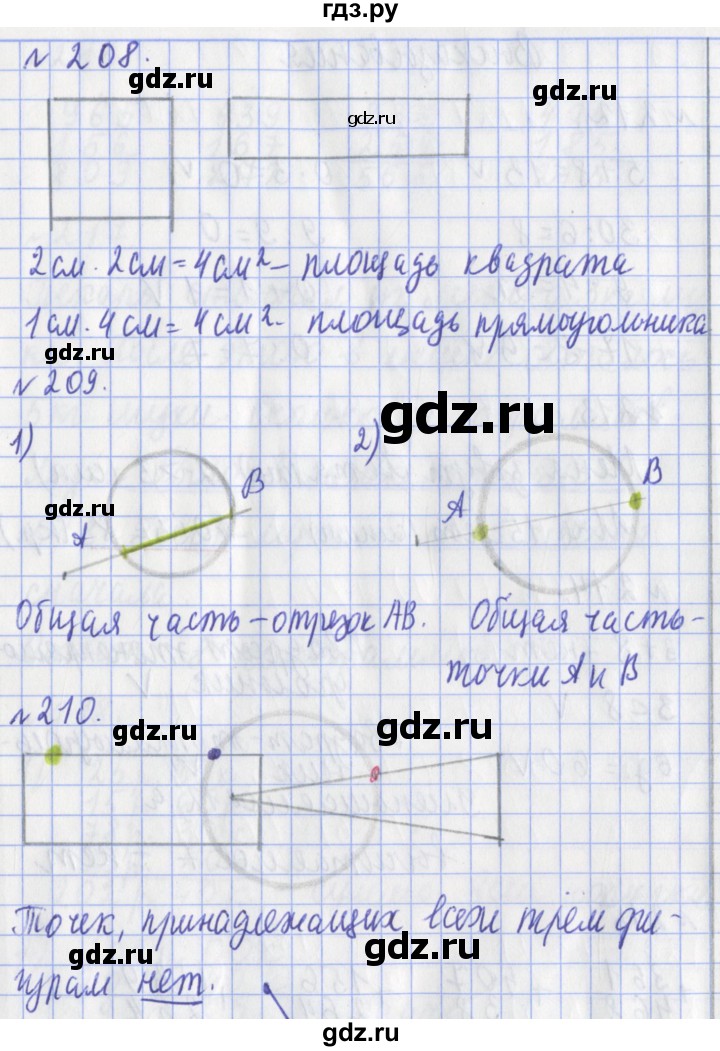 гдз.ру
№ 208.
gdz.ru
gdz.ru
gdz.ru
2см · 2см = 4см² – площадь квадрата
1см · 4см = 4см² – площадь прямоугольника
gdz.ru
№ 209.
gdz.ru
1)
2)
B
B
gdz.ru
A
A
Общая часть – отрезок АВ.
Общая часть –
точки А и В
№ 210.
gdz.ru
gdz.ru
Точек, принадлежащих всем трём фи-
gdz.ru
gdz.ru
гурам нет.
gdz.ru
gdz.ru